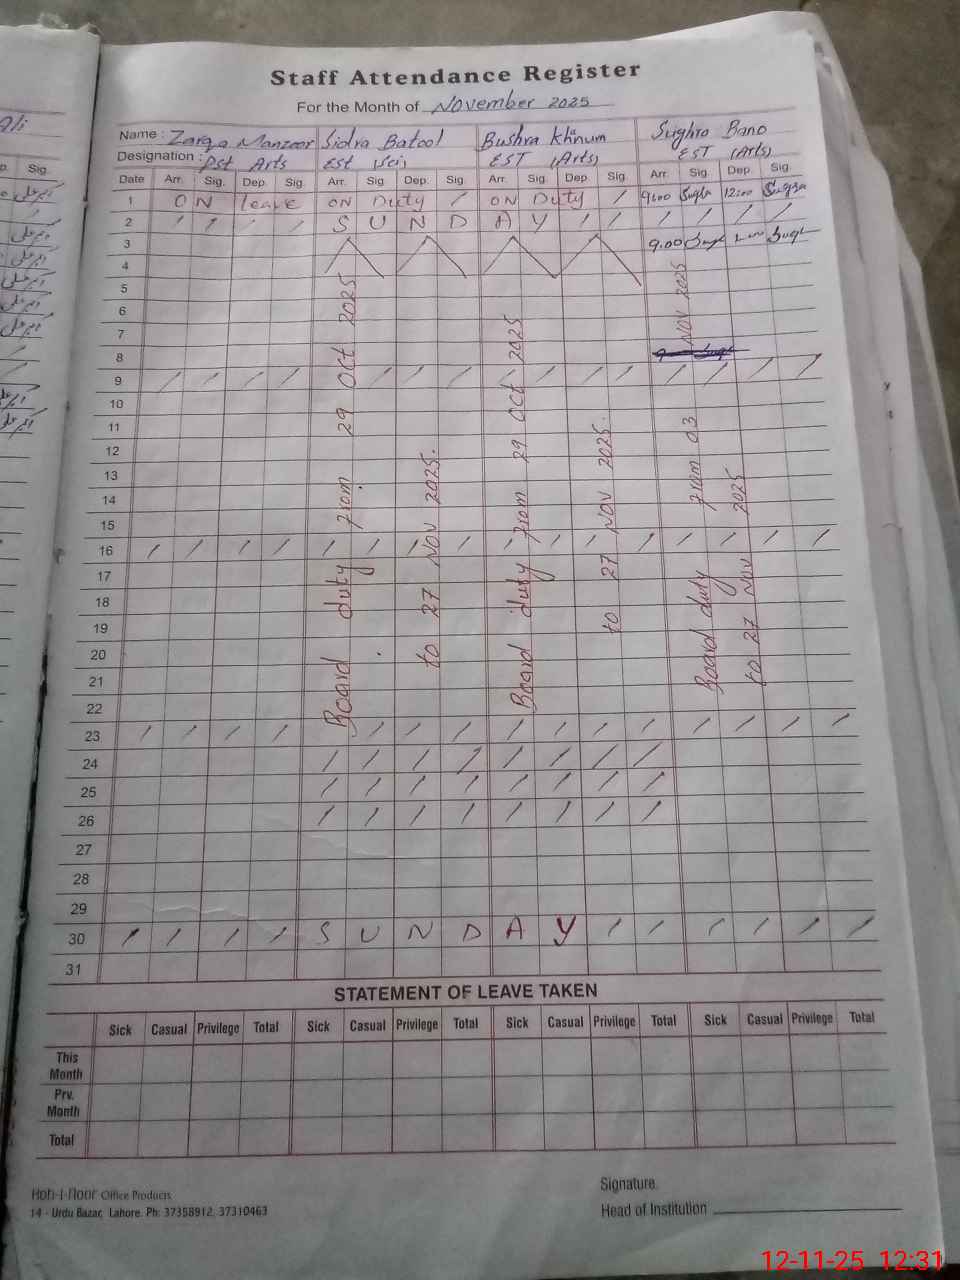 Staff Attendance Register
For the Month of November 2025
Name : Zarqa Manzoor Sidra Batool Bushra Khnum Sughra Bano
Designation : Pst Arts Est (Sci) EST (Arts) EST (Arts)
Date Arr. Sig. Dep. Sig. Arr. Sig. Dep. Sig. Arr. Sig. Dep. Sig. Arr. Sig. Dep. Sig.
1 ON leave ON Duty / ON Duty / 9:00 Sugra 12:00 Sugra
2 / / / / S U N D A Y / / / / / /
3 9.00
4
5
6
7
8
9 / / / / / / / / / / / / /
10
11
12
13
14
15
16 / / / / / / / / / / / / / / / /
17
18
19
20
21
22
23 / / / / / / / / / / / / / / /
24 / / / / / / / /
25 / / / / / / / /
26 / / / / / / / /
27
28
29
30 / / / / S U N D A Y / / / / / /
31
Board duty from 29 Oct 2025
to 27 Nov 2025.
Board duty from 29 Oct 2025
to 27 Nov 2025.
Board duty from 03 Nov 2025
to 27 Nov 2025
STATEMENT OF LEAVE TAKEN
Sick Casual Privilege Total Sick Casual Privilege Total Sick Casual Privilege Total Sick Casual Privilege Total
This Month
Prv. Month
Total
Koh-i-Noor Office Products
14 - Urdu Bazar, Lahore. Ph: 37358912, 37310463
Signature.
Head of Institution
12-11-25 12:31